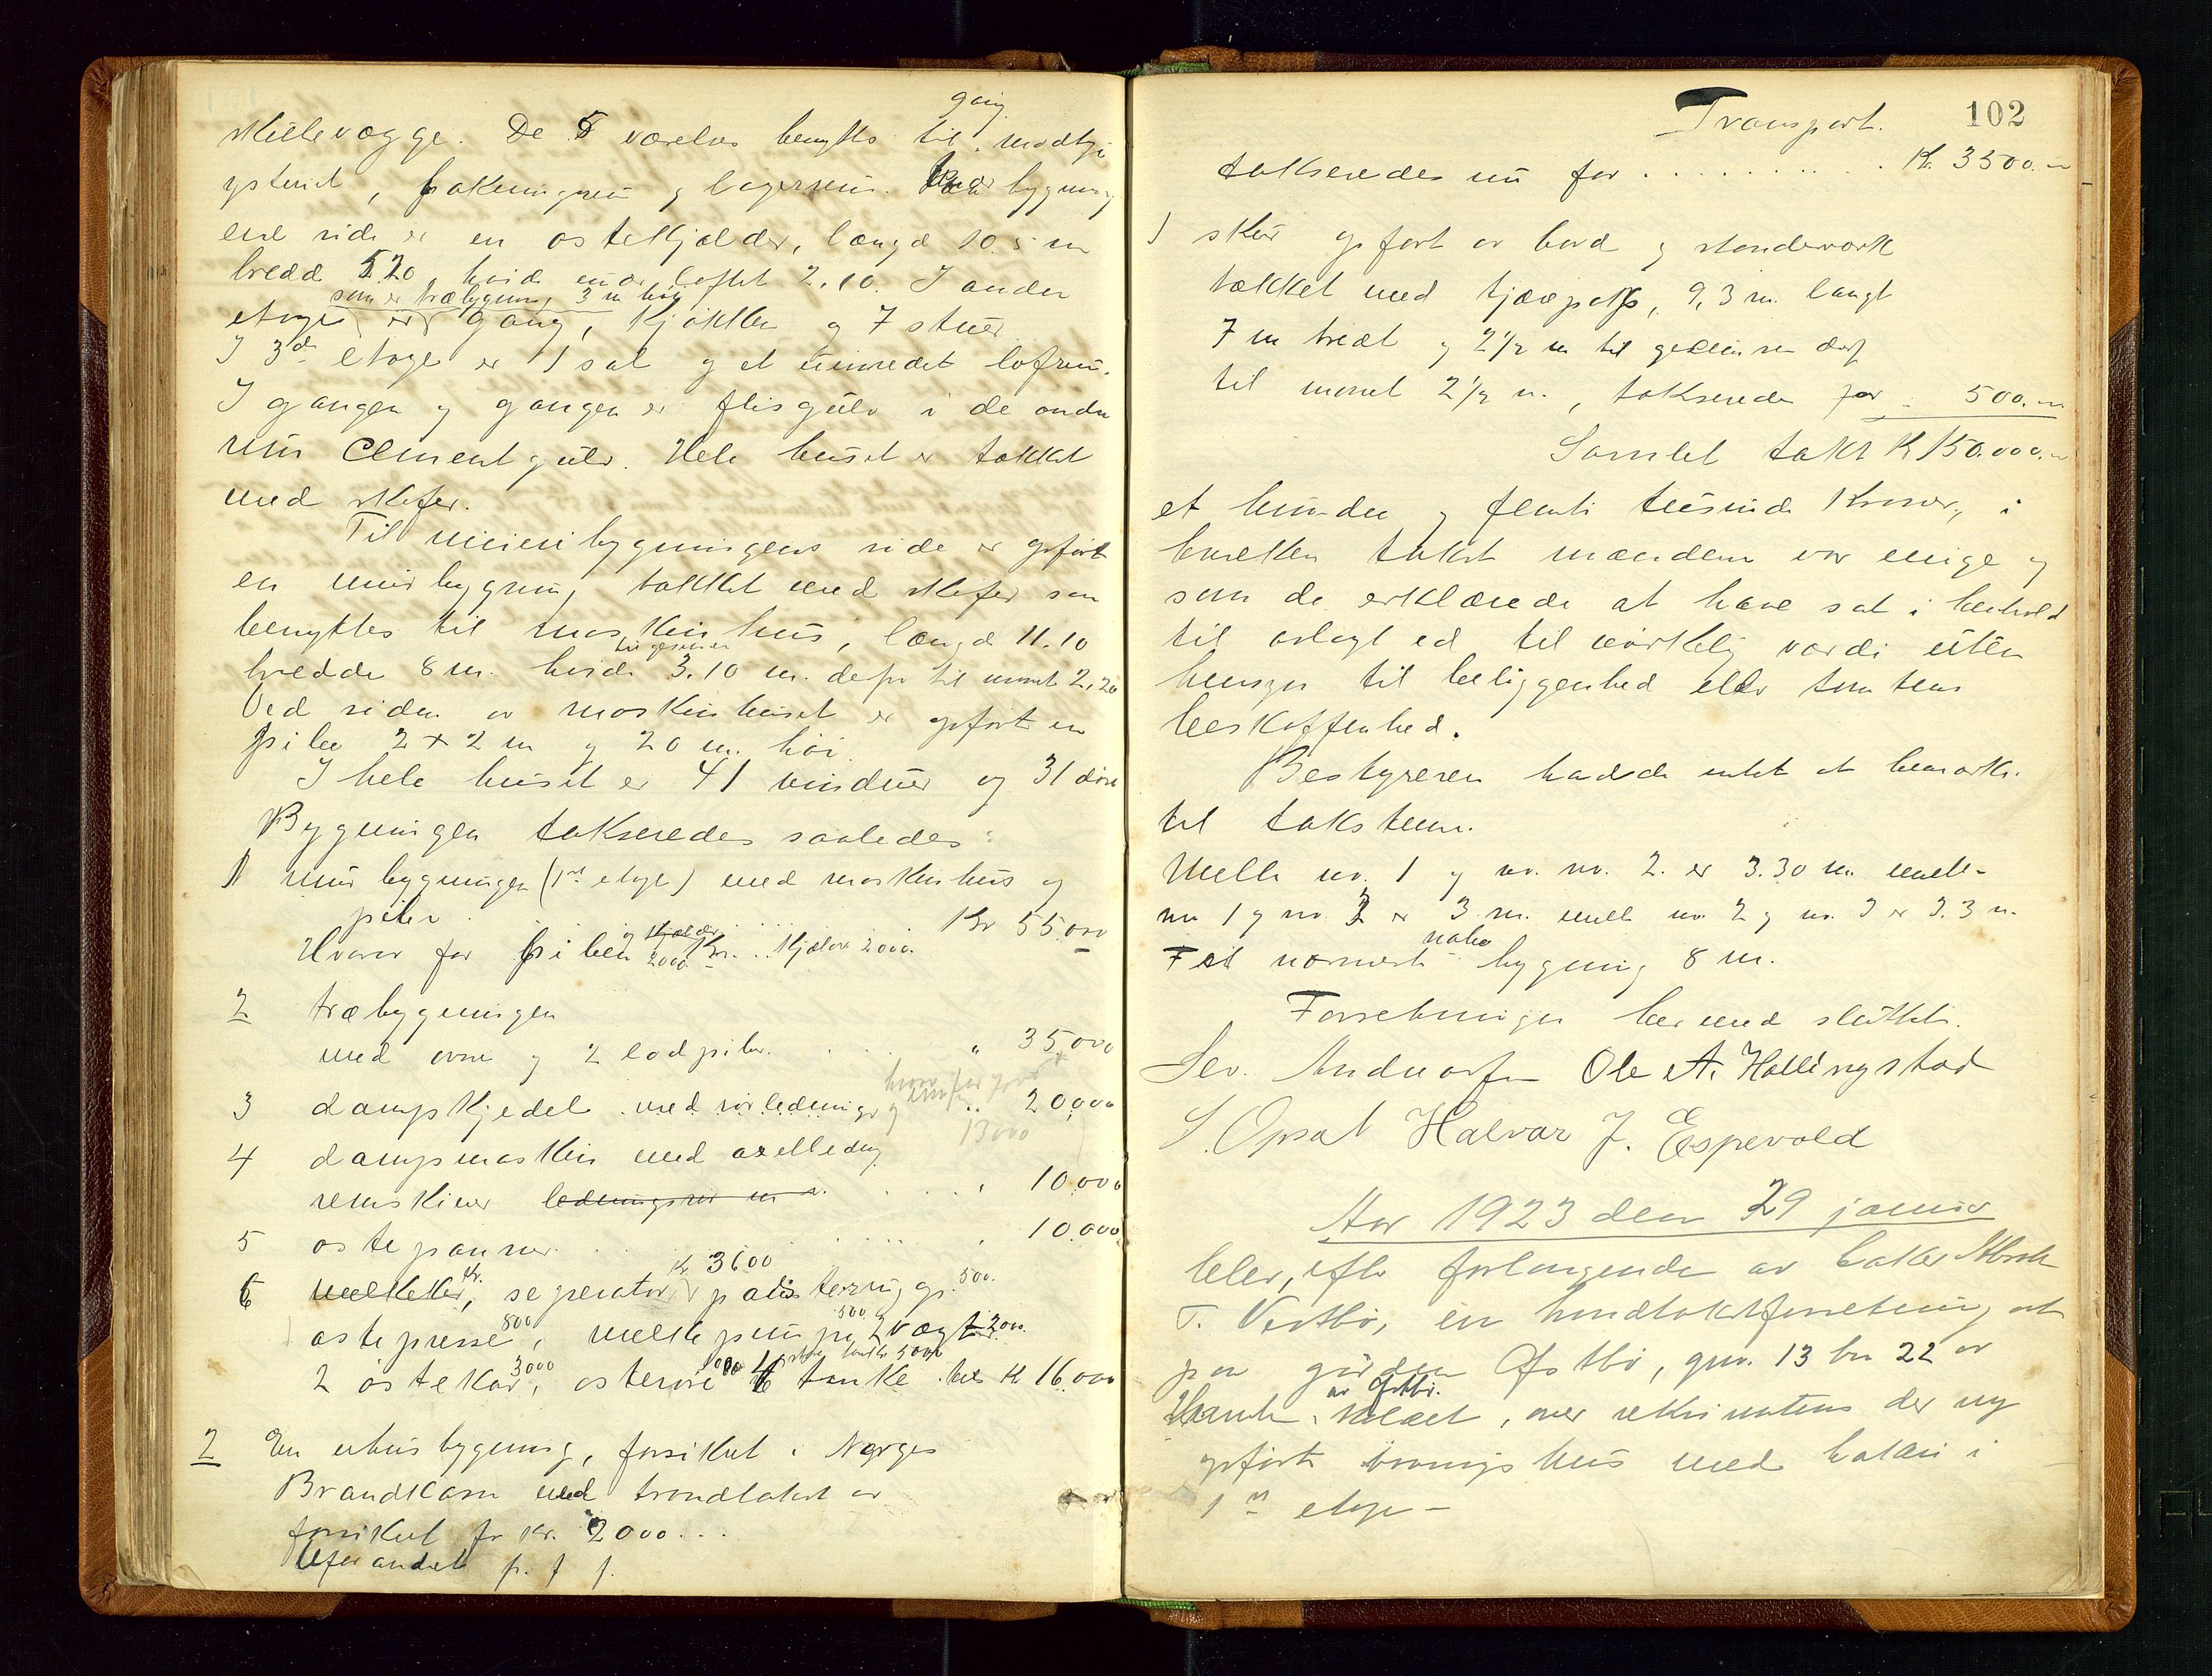 gang
skillevægge. De 5 værelser benyttes til modtagi
ysteriet, pakningsrum og lagerrum. Ved bygning
ens side er en ostekjælder, længde 10.5 m
bredde 5.20, høide under loftet 2.10. I anden
som er træbygning 3 m høi
etage er gang, kjøkken og 7 stuer
I 3die etage er 1 sal og et uinredet lofrum.
I gangen og gangen er flisgulv i de andre
rum Cementgulv. Hele huset er tækket
med skifer.
Til meieribygningens side er opført
en murbygning tækket med skifer som
benyttes til maskinhus, længde 11.10
til gesimsen
bredde 8 m. høide 3.10 m. derfra til mønet 2,20
Ved siden av maskinhuset er opført en
pibe 2 + 2 m og 20 m. høi.
I hele huset er 41 vinduer og 31 døre
Bygningen takseredes saaledes:
1 murbygningen (1ste etage) med maskinhus og
piber Kr 55.000
og kjælder
Hvorav for piben 2000.- Kr. .. kjælder 2000.
2 træbygningen
med ovne og 2 lodpiber. . . . " 35,000
3 dampkjedel med rørledninger og " 20,000
13000
4 dampmaskin med axelledning
remskiver ledningsrør m. v. . . . " 10,000
5 ostepanner . . . . . " 10.000
Kr 3600
6 melkekar, seperator, pasteurings. 500.
800 500
ostepresse, melkepumpe 2 vægter 200.
3000
2 ostekar, osterøre tanke tils Kr 16.000
2 En uthusbygning, forsikret i Norges
Brandkasse med brandtakst av
forsikret for kr. 2000...
Uforandret p. t.
Transport. 102
takseredes nu for . . . . . . . . . Kr. 3500.-
1 skur opført av bord og stenderverk
tækket med tjærepap, 9,3 m. langt
7 m bredt og 2 1/2 m til gesimsen derfra
til mønet 2 1/2 m., takseredes for " 500.-
Samlet takst Kr 150.000.-
et hundre og femti tusinde Kroner, i
hvilken takst mændene var enige og
som de erklærede at have sat i henhold
til avlagt ed til virkelig værdi uten
hensyn til beliggenhed eller tomtens
beskaffenhed.
Bestyreren hadde intet at bemærke
til taksten.
Mellem nr. 1 og nr. 2. er 3.30 m. mellem
nr 1 og nr. 3 er 3 m. mellem nr. 2 og nr. 3 er 3.3 m.
nabo
Til nærmeste bygning 8 m.
Forretningen hermed sluttet.
Sev. Anduorsen Ole A. Hallingstad
S. Opsal Halvar J. Espevold
Aar 1923 den 29 januar
blev, efter forlangende av baker
T. Vestbø, en brandtakstforretning avh
paa gaarden Østbø, gnr. 13 bn 22 av
av Østbø.
, over rekvirentens der ny
opførte vaaningshus med bakeri i
1ste etage -